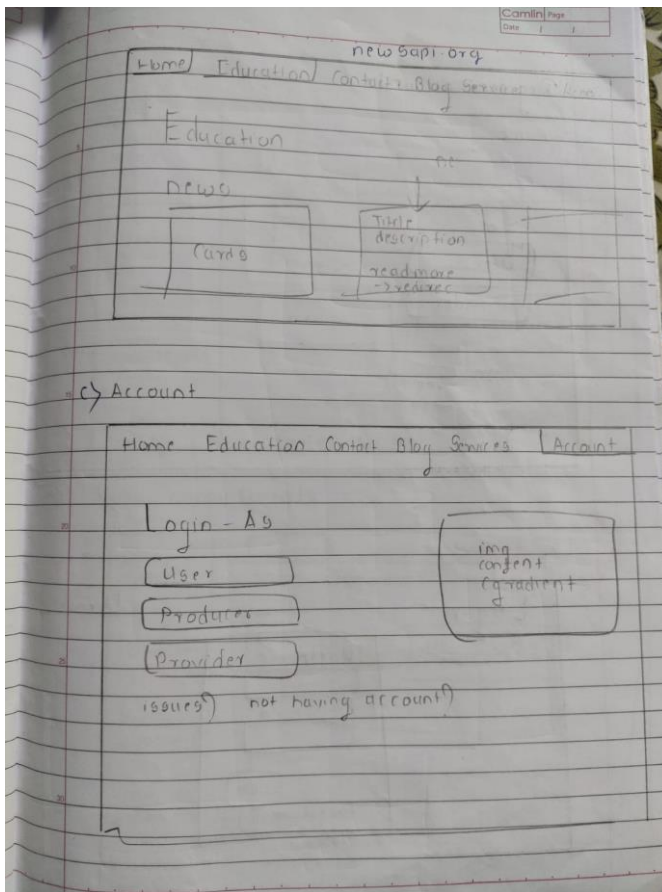 Camlin Page
Date / /
newsapi.org
Home Education Contact Blog Services
Education
news
Cards
Title
description
readmore
→ redirec
c) Account
Home Education Contact Blog Services Account
Login - As
User
Producer
Provider
img
content
(gradient
issues? not having account?